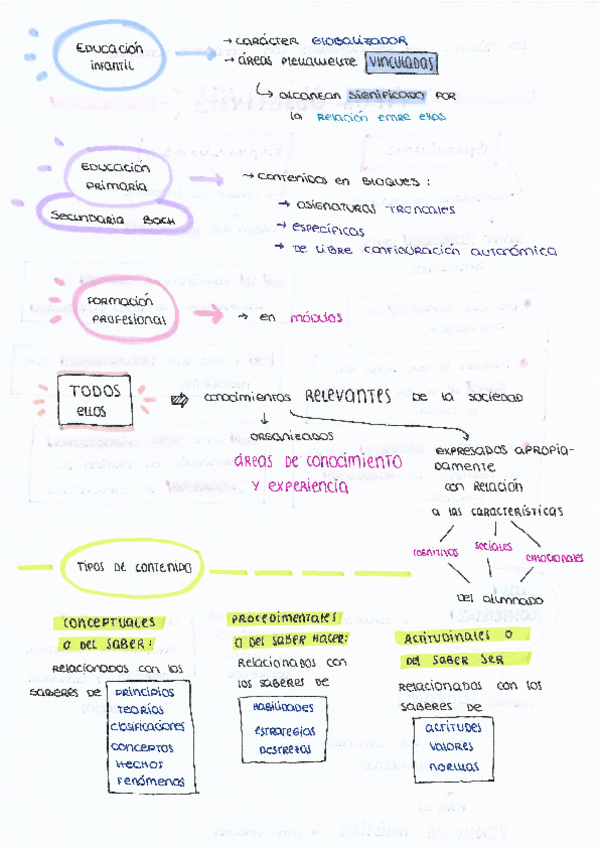 EDUCACIÓN
INFANTIL
→ CARÁCTER GLOBALIZADOR
→ ÁREAS PLENAMENTE VINCULADAS
↳ ALCANZAN SIGNIFICADO POR
LA RELACIÓN ENTRE ELLAS
EDUCACIÓN
PRIMARIA
SECUNDARIA BACH
→ CONTENIDOS EN BLOQUES:
→ ASIGNATURAS TRONCALES
→ ESPECÍFICAS
→ DE LIBRE CONFIGURACIÓN AUTONÓMICA
FORMACIÓN
PROFESIONAL
→ EN MÓDULOS
TODOS
ELLOS
⇒ CONOCIMIENTOS RELEVANTES DE LA SOCIEDAD
ORGANIZADOS
ÁREAS DE CONOCIMIENTO
Y EXPERIENCIA
EXPRESADOS APROPIA-
DAMENTE
CON RELACIÓN
A LAS CARACTERÍSTICAS
COGNITIVAS SOCIALES EMOCIONALES
DEL ALUMNADO
TIPOS DE CONTENIDO
CONCEPTUALES
O DEL SABER:
RELACIONADOS CON LOS
SABERES DE PRINCIPIOS
TEORÍAS
CLASIFICACIONES
CONCEPTOS
HECHOS
FENÓMENOS
PROCEDIMENTALES
O DEL SABER HACER:
RELACIONADOS CON
LOS SABERES DE
HABILIDADES
ESTRATEGIAS
DESTREZAS
ACTITUDINALES O
DEL SABER SER
RELACIONADOS CON LOS
SABERES DE
ACTITUDES
VALORES
NORMAS